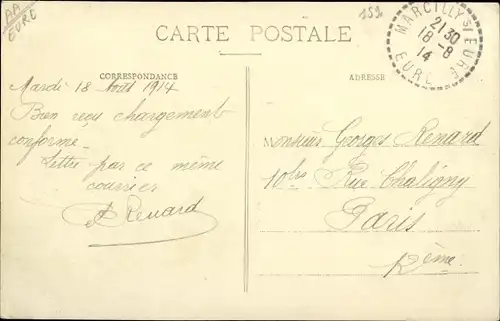 AA
EURE
152
MARCILLY S/ EURE
21 30
18 - 8
14
EURE
CARTE POSTALE
CORRESPONDANCE
ADRESSE
Mardi 18 Août 1914
Bien reçu chargement
conforme.
Lettre par ce même
courrier
A Renard
Monsieur Gorges Renard
10 bis Rue Chaligny
Paris
12ème.